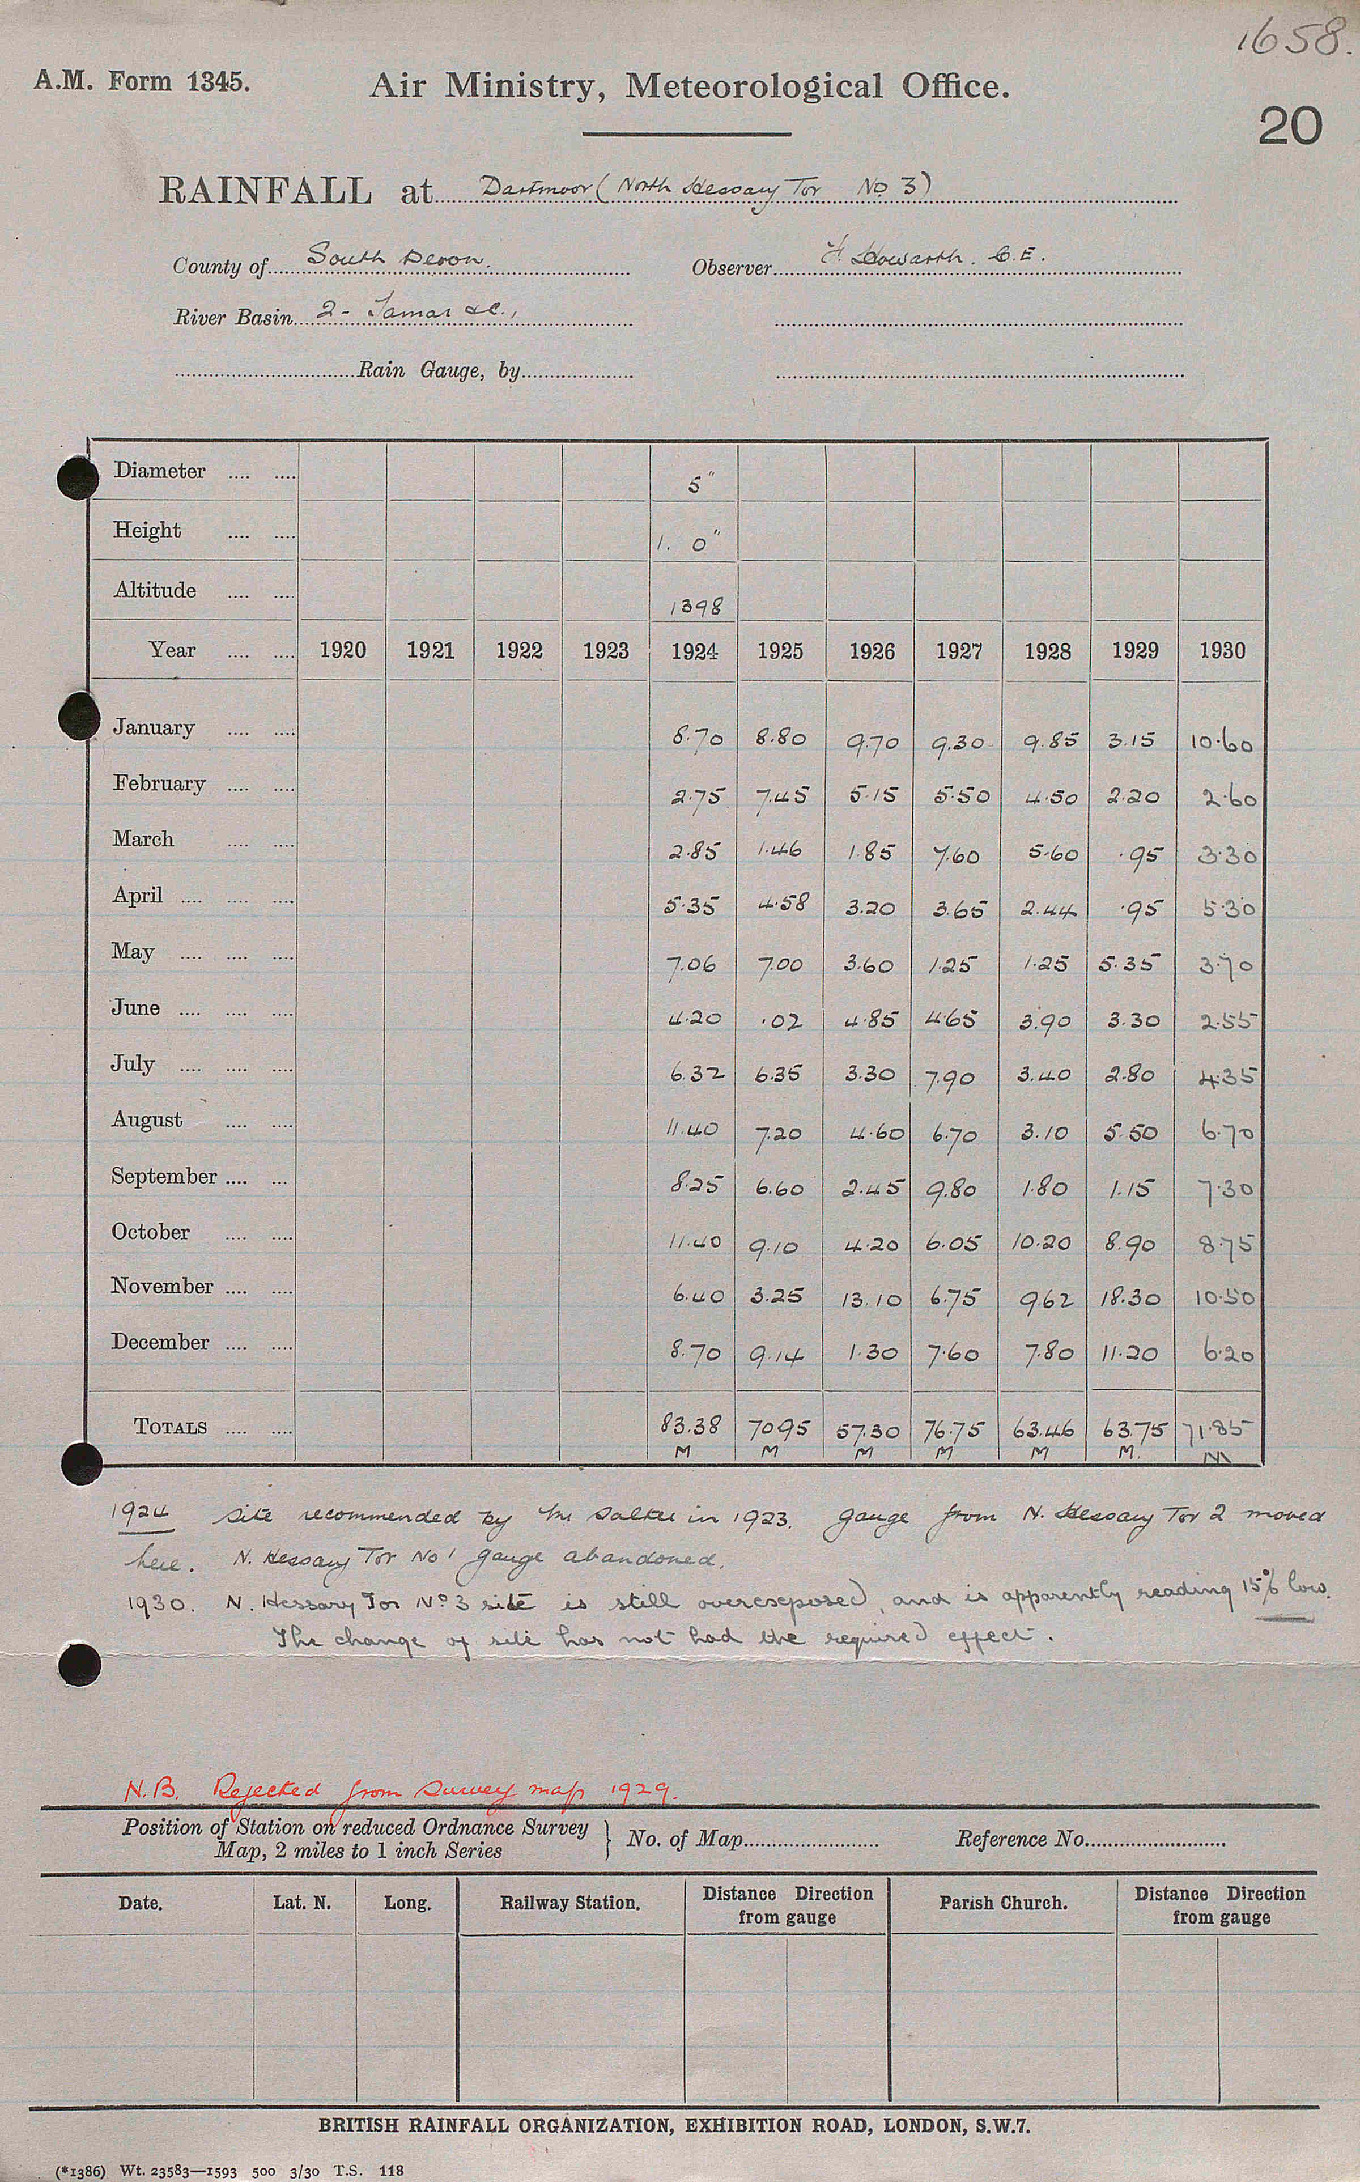 1658.
A.M. Form 1345. Air Ministry, Meteorological Office.
20
RAINFALL at Dartmoor ( North Hessary Tor No 3)
County of South Devon. Observer F Howarth. C.E.
River Basin 2 - Tamar &c.,
Rain Gauge, by
Diameter .... .... 5"
Height .... .... 1. 0"
Altitude .... .... 1398
Year .... .... 1920 1921 1922 1923 1924 1925 1926 1927 1928 1929 1930
January .... .... 8.70 8.80 9.70 9.30 9.85 3.15 10.60
February .... .... 2.75 7.45 5.15 5.50 4.50 2.20 2.60
March .... .... 2.85 1.46 1.85 7.60 5.60 .95 3.30
April .... .... .... 5.35 4.58 3.20 3.65 2.44 .95 5.30
May .... .... .... 7.06 7.00 3.60 1.25 1.25 5.35 3.70
June .... .... .... 4.20 .02 4.85 4.65 3.90 3.30 2.55
July .... .... .... 6.32 6.35 3.30 7.90 3.40 2.80 4.35
August .... .... 11.40 7.20 4.60 6.70 3.10 5.50 6.70
September .... ... 8.25 6.60 2.45 9.80 1.80 1.15 7.30
October .... .... 11.40 9.10 4.20 6.05 10.20 8.90 8.75
November .... .... 6.40 3.25 13.10 6.75 9.62 18.30 10.50
December .... .... 8.70 9.14 1.30 7.60 7.80 11.20 6.20
TOTALS .... .... 83.38 70.95 57.30 76.75 63.46 63.75 71.85
M M M M M M. M
1924 Site recommended by Mr Salter in 1923. Gauge from N. Hessary Tor 2 moved
here. N. Hessary Tor No 1 gauge abandoned.
1930. N. Hessary Tor No 3 site is still overexposed, and is apparently reading 15% low.
The change of site has not had the required effect.
N.B. Rejected from Survey map 1929.
Position of Station on reduced Ordnance Survey
Map, 2 miles to 1 inch Series } No. of Map Reference No.
Date. Lat. N. Long. Railway Station. Distance Direction Parish Church. Distance Direction
from gauge from gauge
BRITISH RAINFALL ORGANIZATION, EXHIBITION ROAD, LONDON, S.W.7.
(*1386) Wt. 23583—1593 500 3/30 T.S. 118